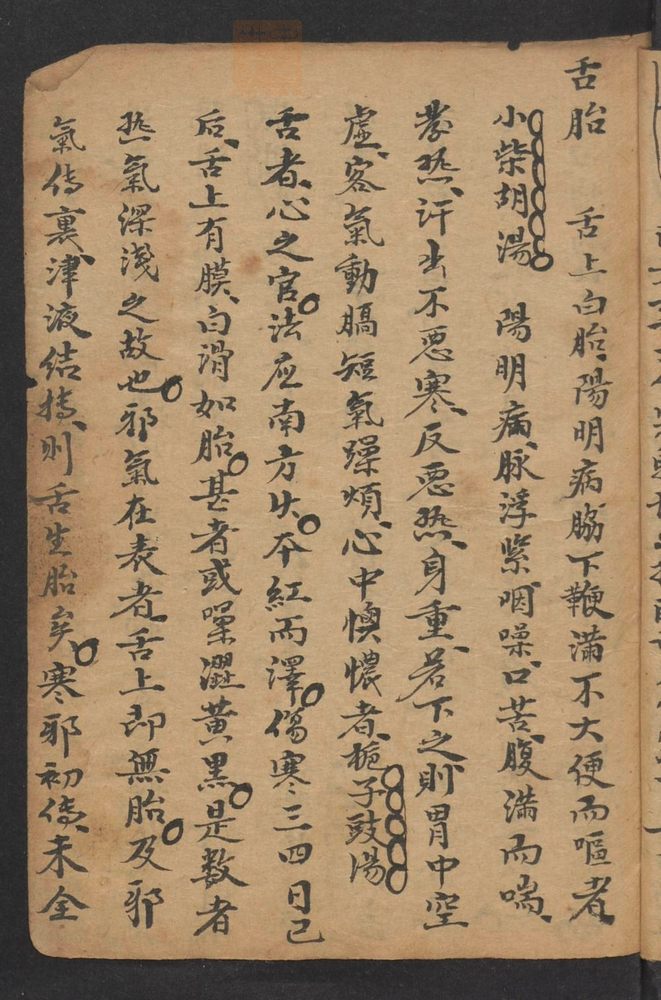 舌胎　舌上白胎陽明病脇下鞭滿不大便而嘔者
小柴胡湯　陽明病脉浮紧咽噪口苦腹满而喘
發热汗出不恶寒反恶热身重若下之則胃中空
虛客氣動膈短氣躁煩心中懊憹者栀子豉湯
舌者心之官法应南方火本紅而澤傷寒三四日已
后舌上有膜白滑如胎甚者或噪澀黄黑是数者
热氣深淺之故也邪氣在表者舌上即無胎及邪
氣傳裏津液结摶則舌生胎矣寒邪初傳未全